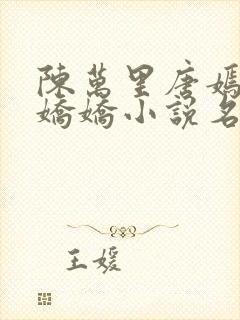 陳萬里唐嫣
嬌嬌小說名
王媛